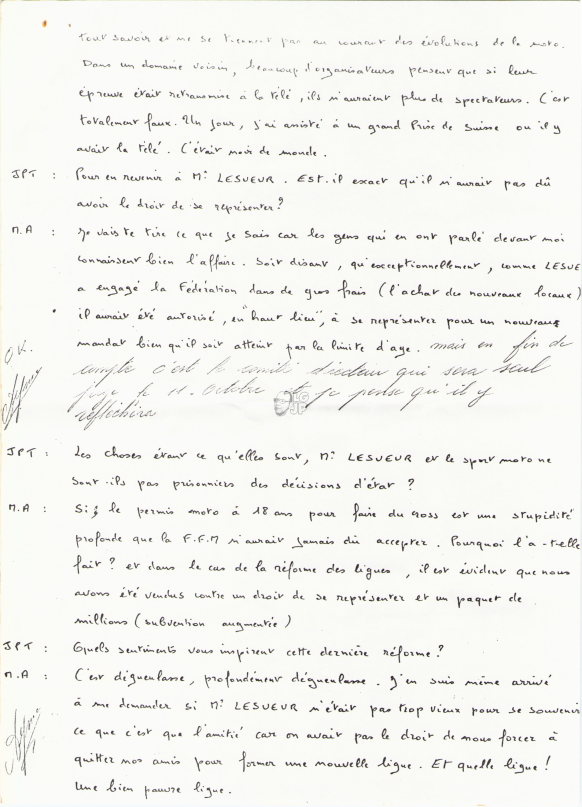 tout savoir et ne se tiennent pas au courant des évolutions de la moto.
Dans un domaine voisin, beaucoup d'organisateurs pensent que si leur
épreuve était retransmise à la télé, ils n'auraient plus de spectateurs. C'est
totalement faux. Un jour, j'ai assisté à un grand Prix de Suisse où il y
avait la télé. C'était noir de monde.
JPT : Pour en revenir à Mr LESUEUR. Est-il exact qu'il n'aurait pas dû
avoir le droit de se représenter ?
M.A : Je vais te tire ce que je sais car les gens qui en ont parlé devant moi
connaissent bien l'affaire. Soit disant, qu'exceptionnellement, comme LESUE
a engagé la Fédération dans de gros frais (l'achat des nouveaux locaux)
il aurait été autorisé, en "haut lieu", à se représenter pour un nouveau
mandat bien qu'il soit atteint par la limite d'age. mais en fin de
O.K.
compte c'est le comité directeur qui sera seul
juge le 11 Octobre et je pense qu'il y
réfléchira
LG
JP
JPT : Les choses étant ce qu'elles sont, Mr LESUEUR et le sport moto ne
sont-ils pas prisonniers des décisions d'état ?
M.A : Si ; le permis moto à 18 ans pour faire du cross est une stupidité
profonde que la F.F.M n'aurait jamais dû accepter. Pourquoi l'a-t-elle
fait ? et dans le cas de la réforme des ligues, il est évident que nous
avons été vendus contre un droit de se représenter et un paquet de
millions (subvention augmentée)
JPT : Quels sentiments vous inspirent cette dernière réforme ?
M.A : C'est dégueulasse, profondément dégueulasse. J'en suis même arrivé
à me demander si Mr LESUEUR n'était pas trop vieux pour se souvenir
ce que c'est que l'amitié car on avait pas le droit de nous forcer à
quitter nos amis pour former une nouvelle ligue. Et quelle ligue !
Une bien pauvre ligue.